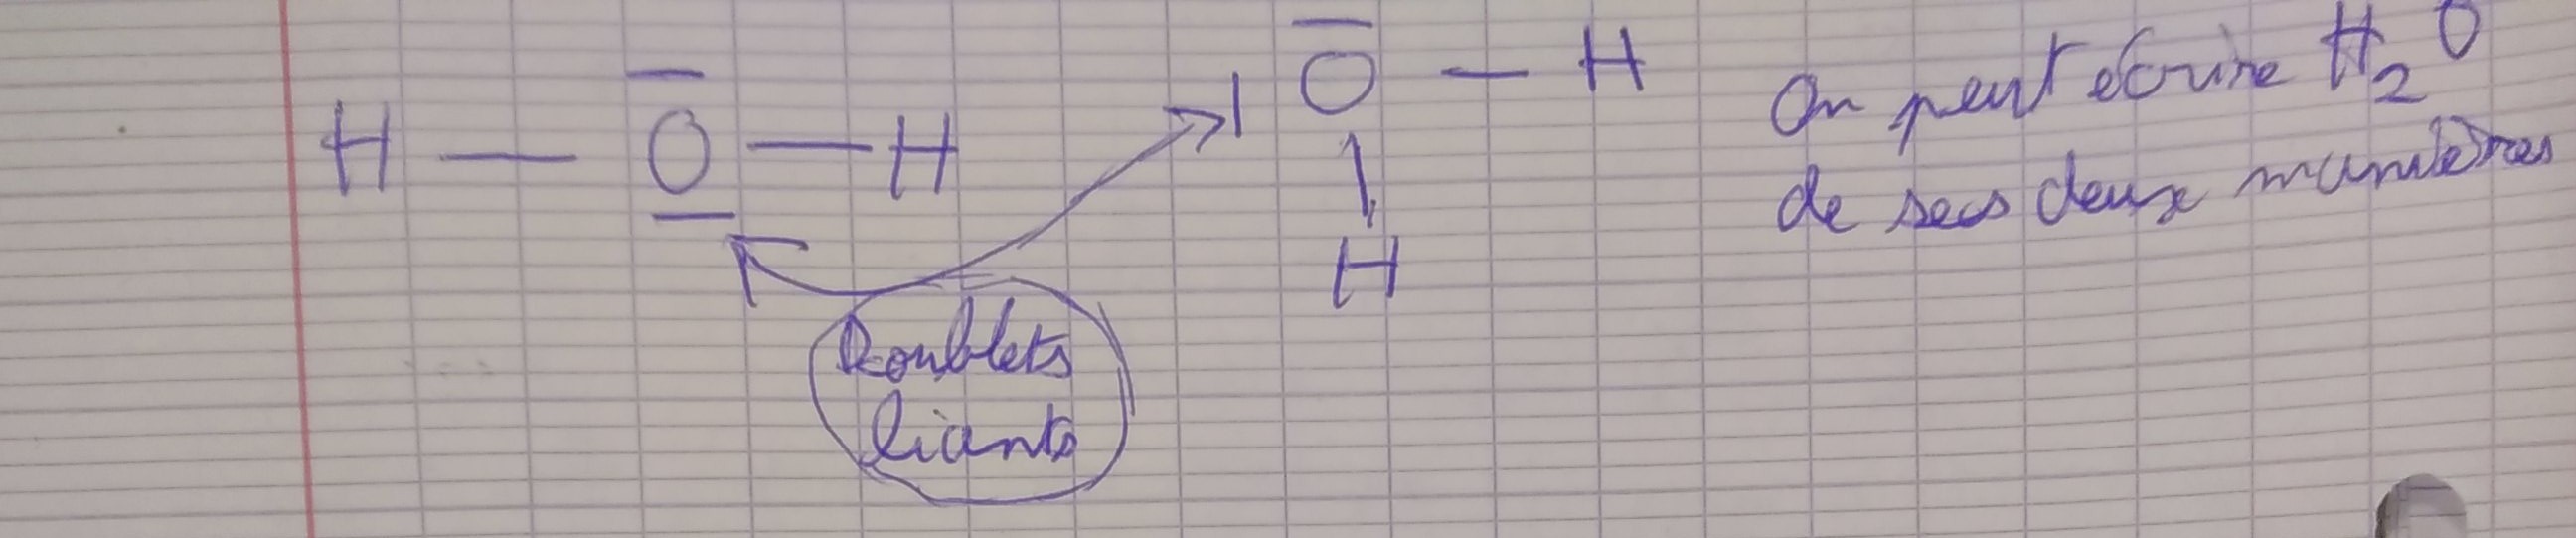 H — O — H
O — H
H
Doublets
liants
On peut écrire H₂O
de ses deux manières